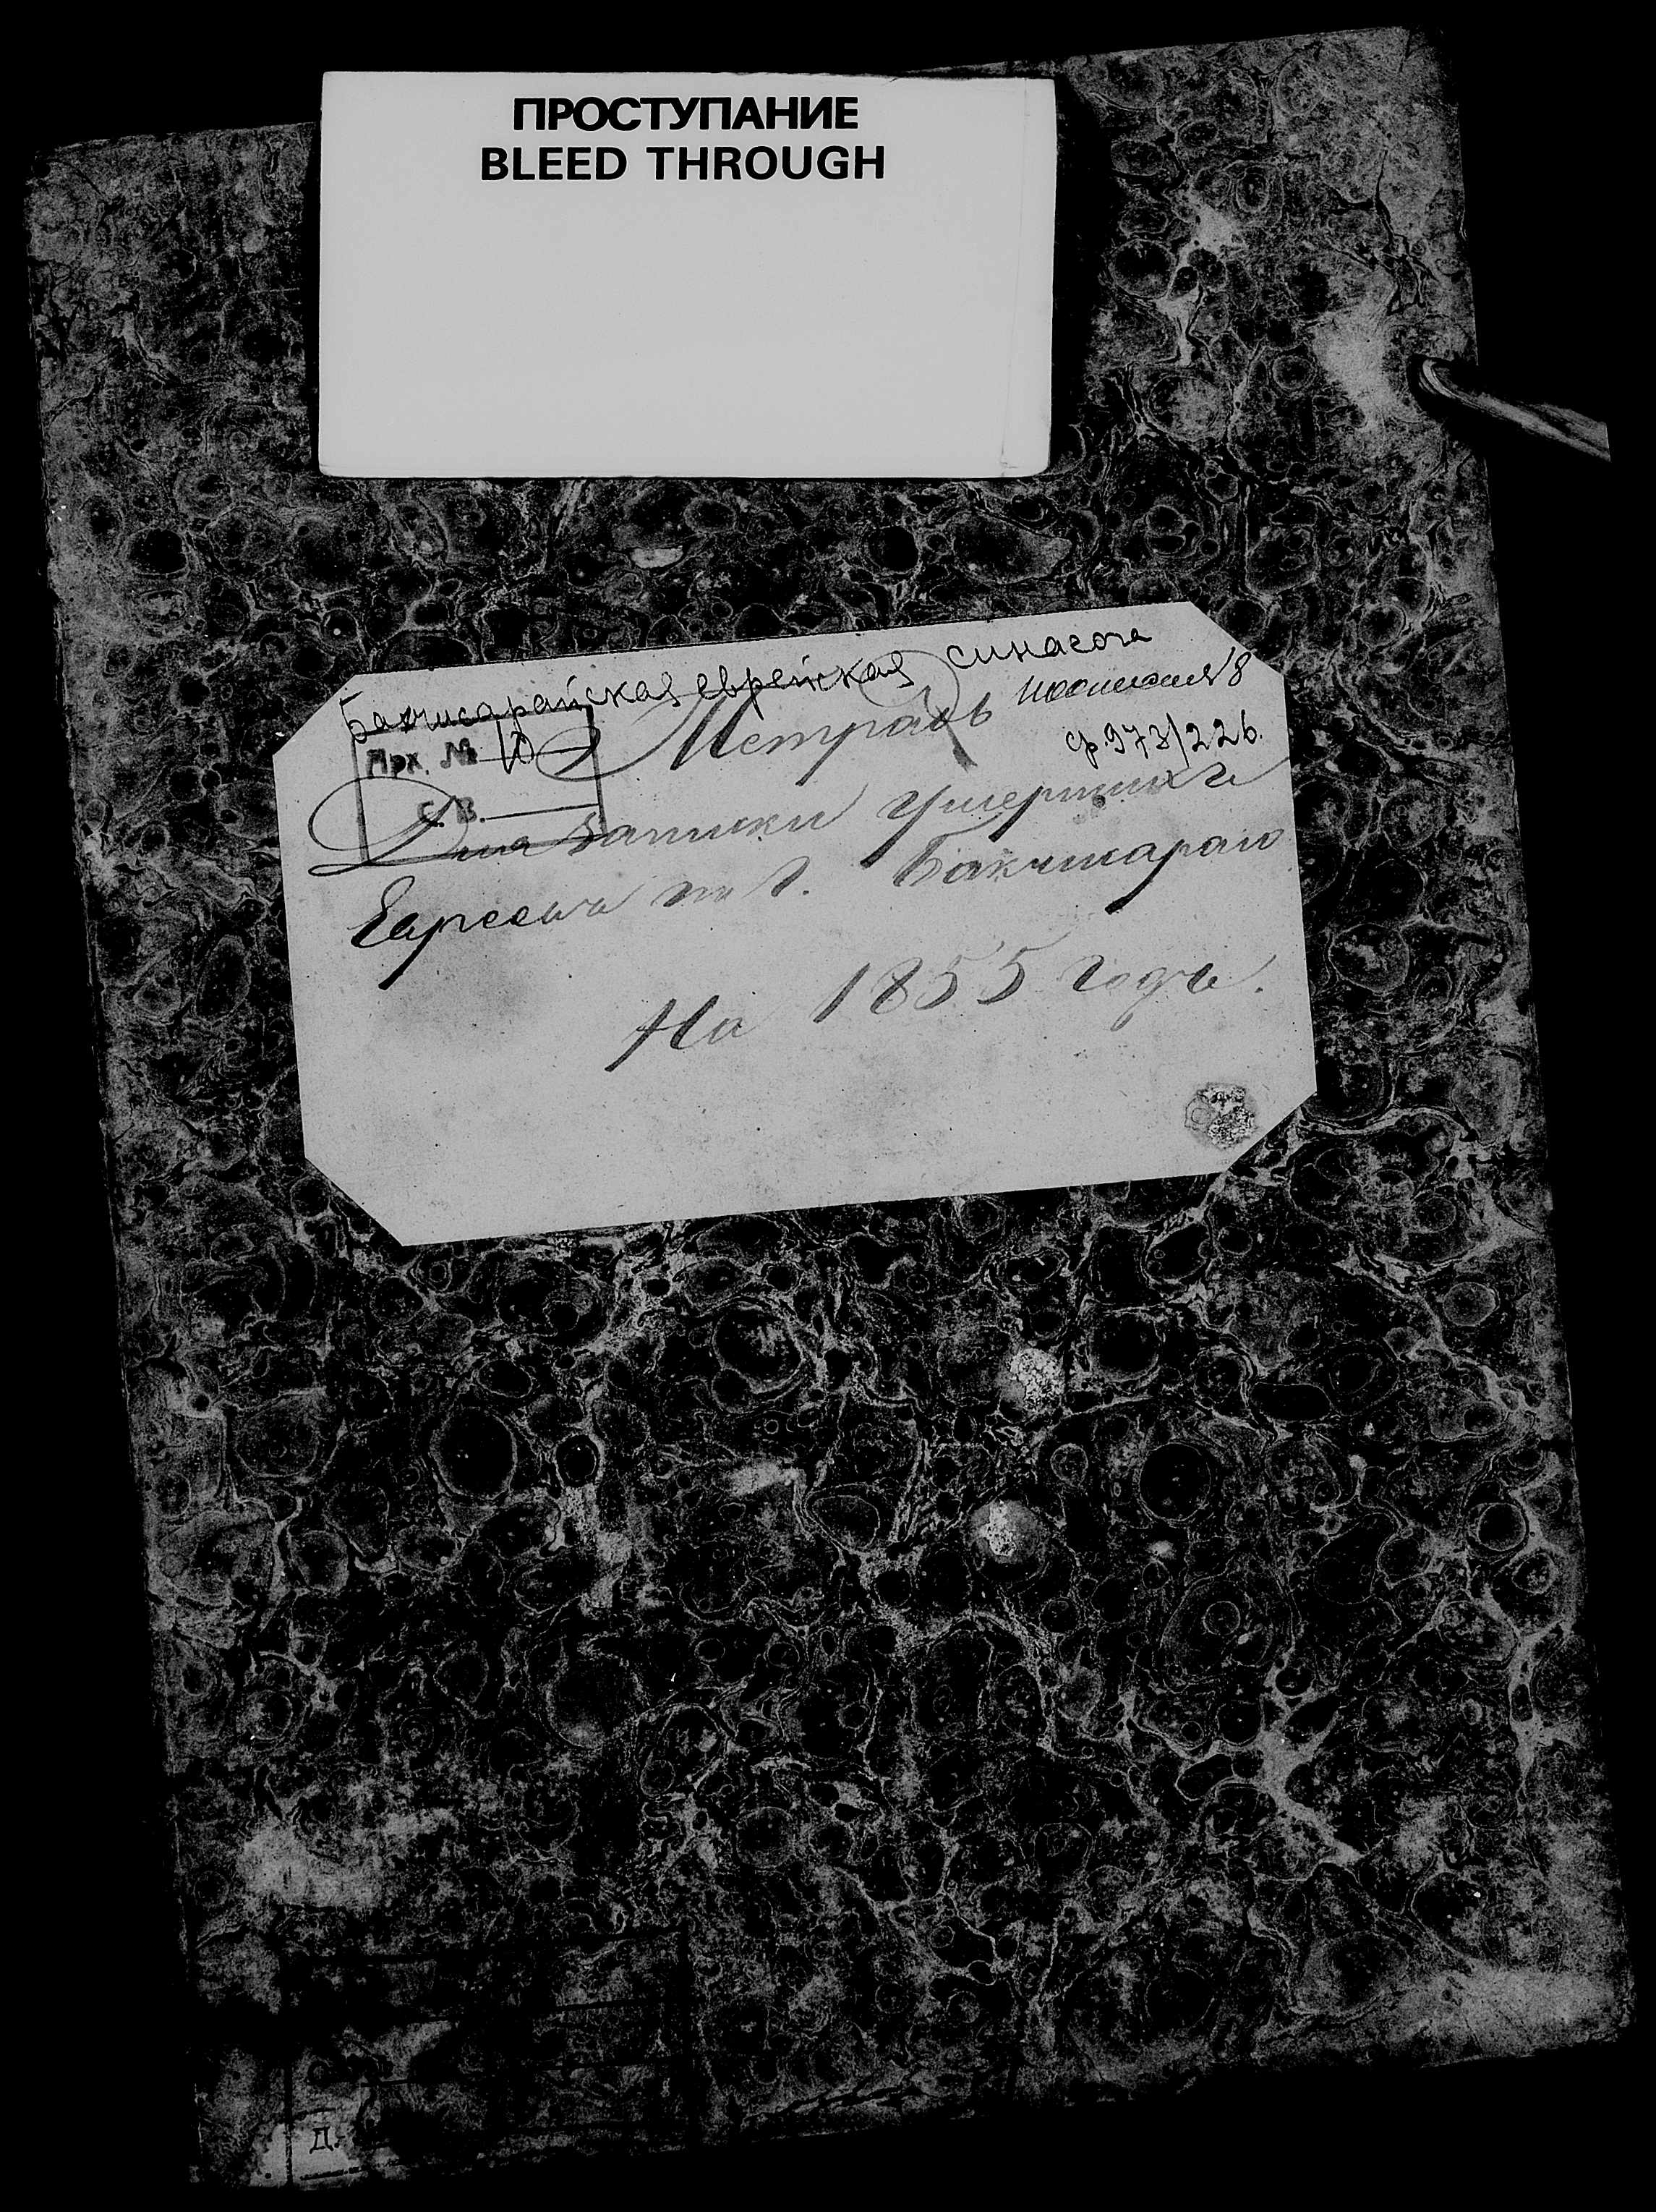 ПРОСТУПАНИЕ
BLEED THROUGH
Бахчисарайская еврейская синагога
Тетрадь
Арх. № 10
ф. 973/226.
С. В.
Для записки умершихъ
Евреевъ по г. Бахчисараю
На 1855 годъ.
Д.